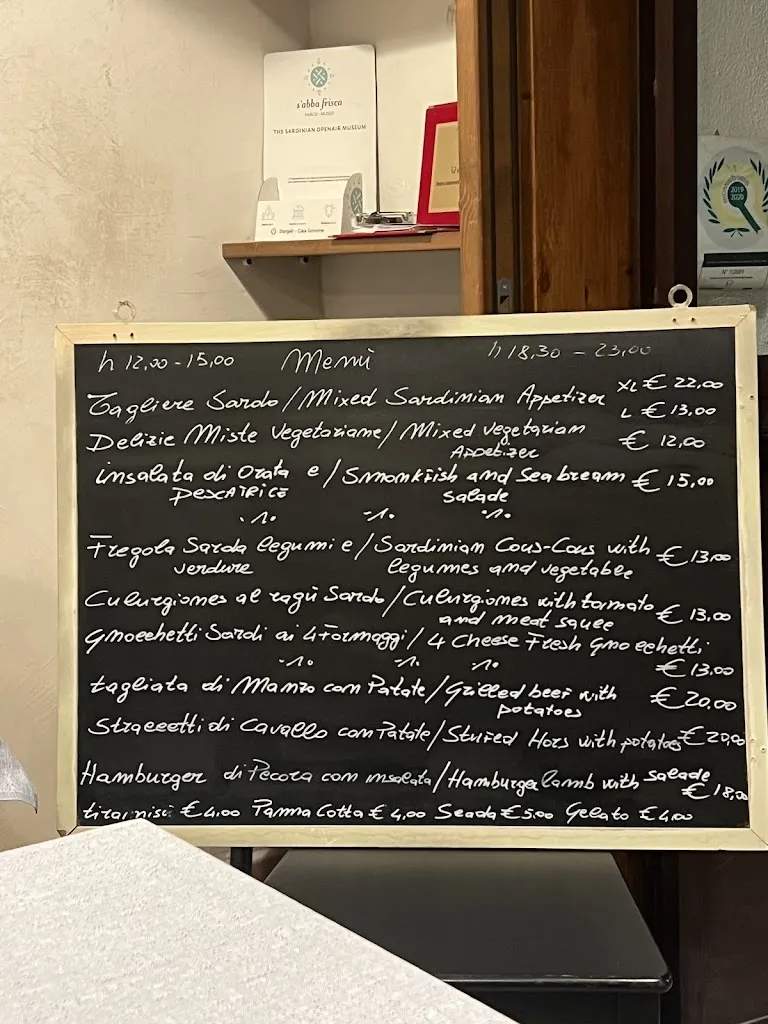 s'abba frisca
PARCO - MUSEO
THE SARDINIAN OPENAIR MUSEUM
Dorgali - Cala Gonone
2019
2020
h 12,00 - 15,00 Menù h 18,30 - 23,00
Tagliere Sardo / Mixed Sardinian Appetizer XL € 22,00
L € 13,00
Delizie Miste Vegetariane / Mixed vegetarian € 12,00
Appetizer
insalata di Orata e / Smonkfish and Sea bream € 15,00
PESCATRICE salade
Fregola Sarda legumi e / Sardinian Cous-Cous with € 13,00
verdure legumes and vegetable
Culurgiones al ragù Sardo / Culurgiones with tomato € 13,00
and meat sauce
Gnocchetti Sardi ai 4 Formaggi / 4 Cheese Fresh Gnocchetti
€ 13,00
tagliata di Manzo con Patate / Grilled beef with € 20,00
potatoes
Straccetti di Cavallo con Patate / Stired Hors with potatoes € 20,00
Hamburger di Pecora con insalata / Hamburger lamb with salade
€ 18,00
tiramisù € 4,00 Panna Cotta € 4,00 Seada € 5,00 Gelato € 4,00